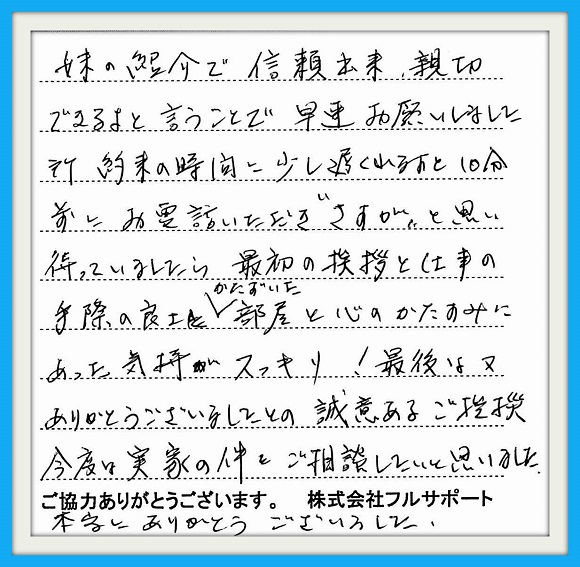 妹の紹介で 信頼出来、親切
できるよと言うことで 早速 お願いしました
所 約束の時間に少し遅くれますと10分
前に お電話いただき"さすが"と思い
待っていましたら 最初の挨拶と仕事の
かたずいた
手際の良さと 部屋と心のかたすみに
あった気持がスッキリ！最後は又
ありがとうございましたとの 誠意ある ご挨拶
今度は実家の件をご相談したいと思いました。
ご協力ありがとうございます。 株式会社フルサポート
本当に ありがとう ございました.